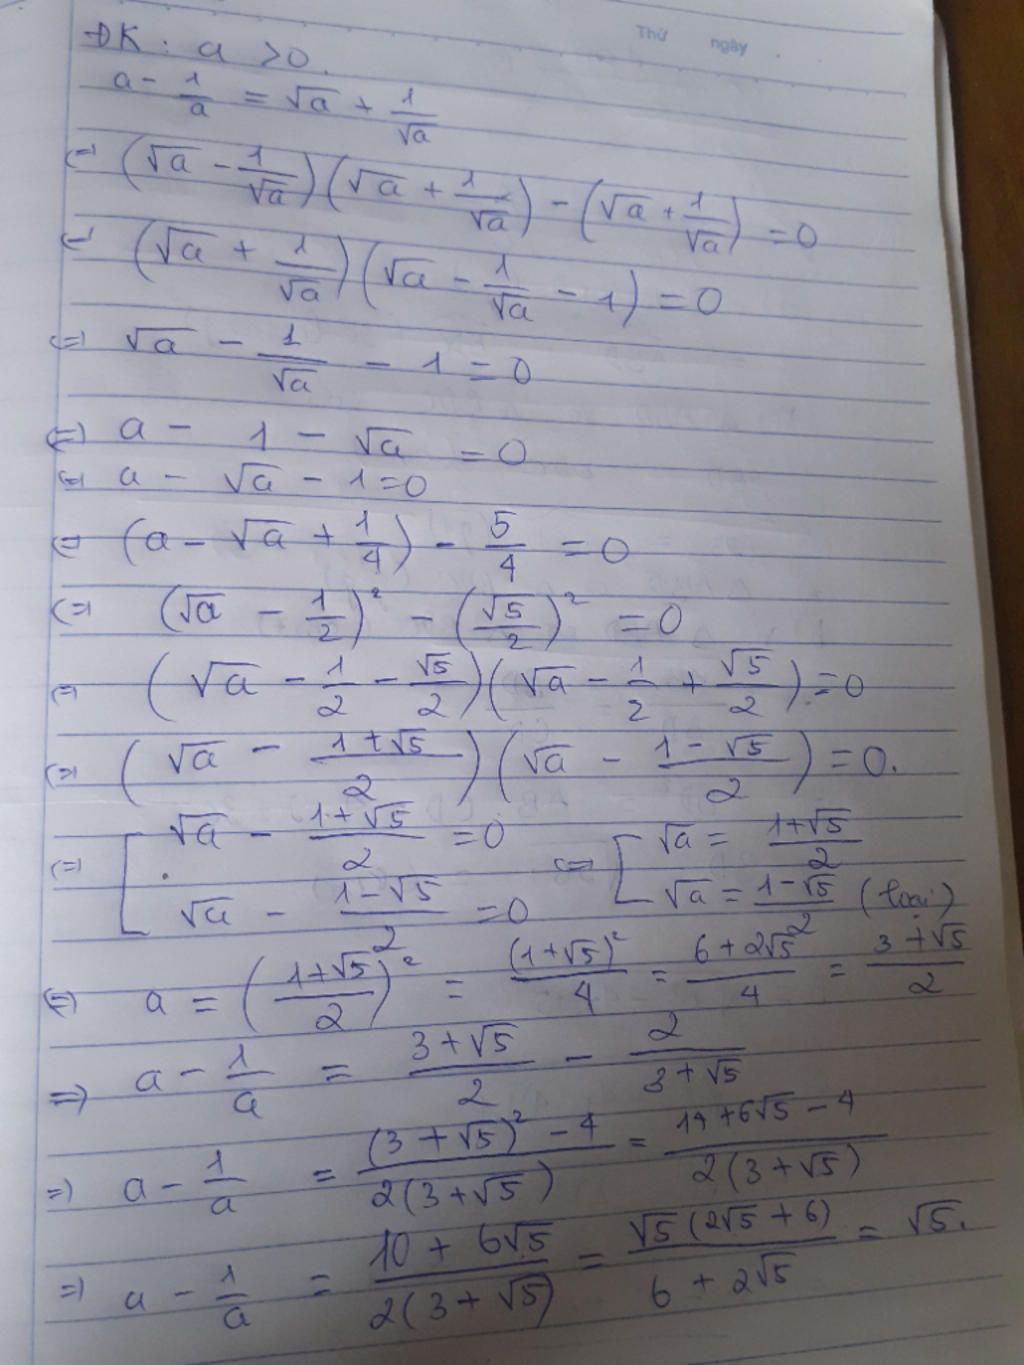 Thứ ngày
ĐK: a > 0.
a - 1/a = √a + 1/√a
(=) (√a - 1/√a)(√a + 1/√a) - (√a + 1/√a) = 0
(=) (√a + 1/√a)(√a - 1/√a - 1) = 0
(=) √a - 1/√a - 1 = 0
(=) a - 1 - √a = 0
(=) a - √a - 1 = 0
(=) (a - √a + 1/4) - 5/4 = 0
(=) (√a - 1/2)² - (√5/2)² = 0
(=) (√a - 1/2 - √5/2)(√a - 1/2 + √5/2) = 0
(=) (√a - (1+√5)/2)(√a - (1-√5)/2) = 0.
(=) [ √a - (1+√5)/2 = 0 (=) [ √a = (1+√5)/2
√a - (1-√5)/2 = 0 √a = (1-√5)/2 (loại)
(=) a = ((1+√5)/2)² = (1+√5)²/4 = (6+2√5)/4 = (3+√5)/2
=) a - 1/a = (3+√5)/2 - 2/(3+√5)
=) a - 1/a = ((3+√5)² - 4)/(2(3+√5)) = (14+6√5-4)/(2(3+√5))
=) a - 1/a = (10+6√5)/(2(3+√5)) = √5(2√5+6)/(6+2√5) = √5.